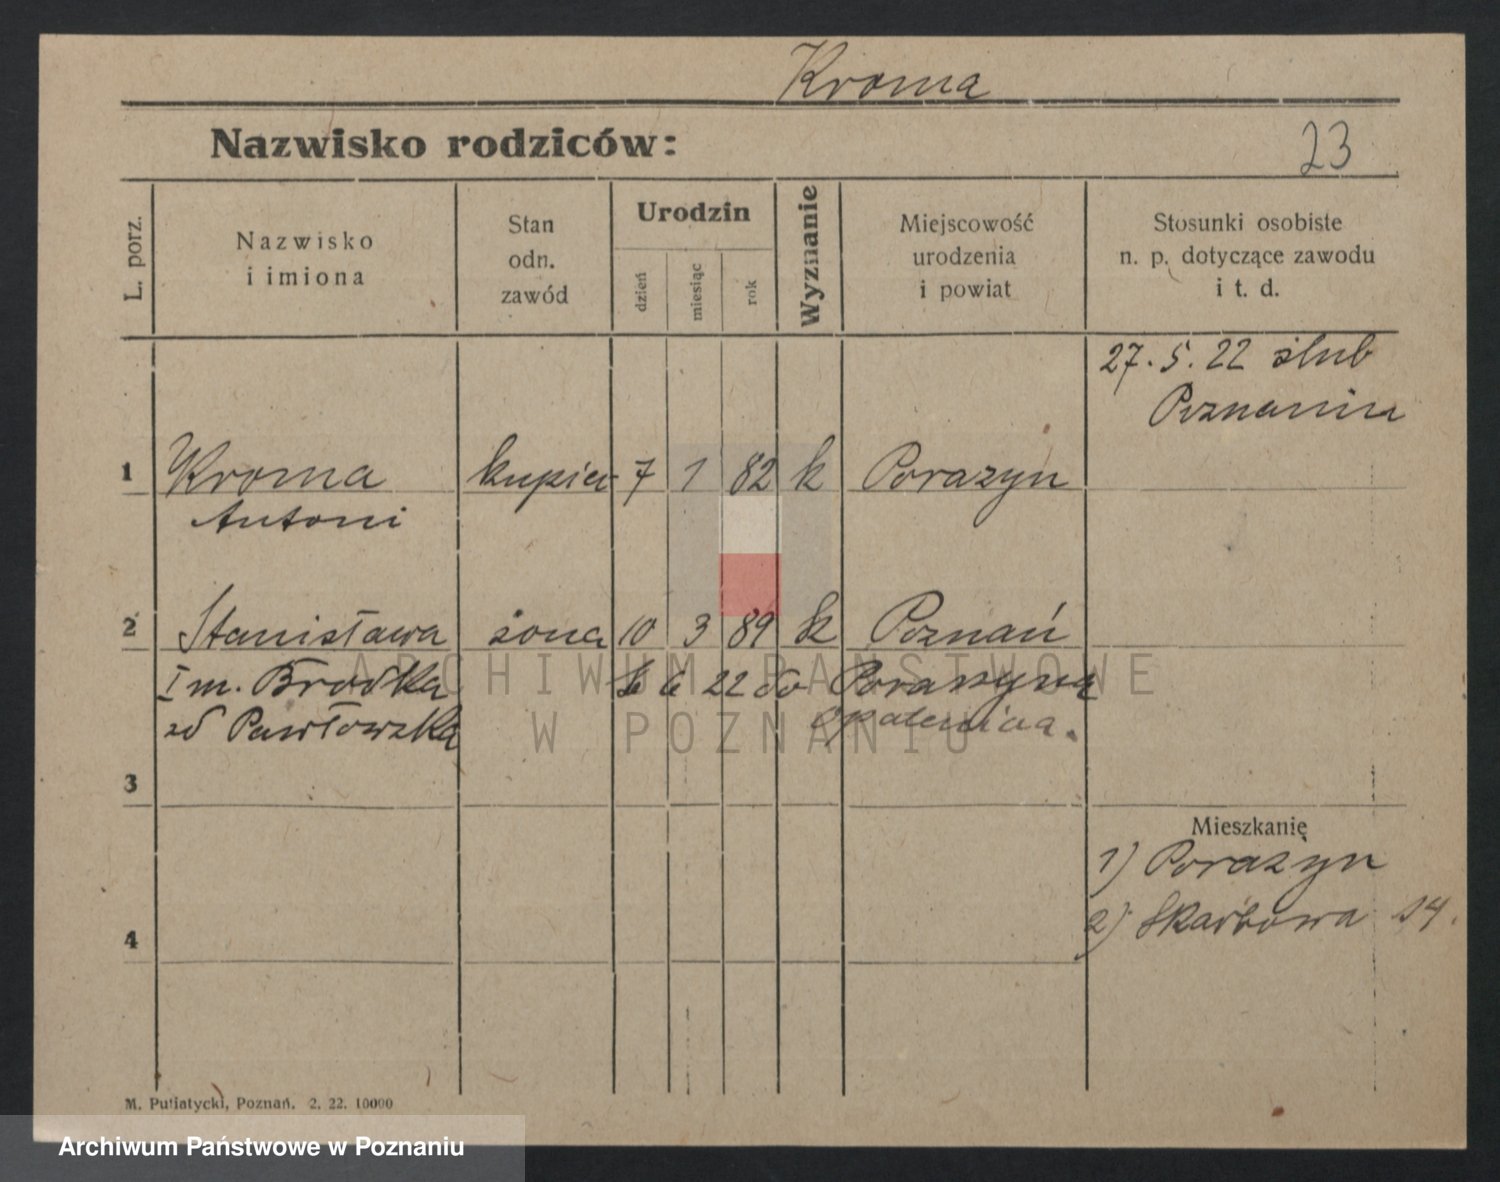 Kroma
Nazwisko rodziców:
23
L. porz.
Nazwisko
i imiona
Stan
odn.
zawód
Urodzin
dzień
miesiąc
rok
Wyznanie
Miejscowość
urodzenia
i powiat
Stosunki osobiste
n. p. dotyczące zawodu
i t. d.
27. 5. 22 ślub
Poznaniu
1 Kroma kupiec 7 1 82 k Porazyn
Antoni
2 Stanisława żona 10 3 89 k Poznań
I m. Brodka 6 22 do Porazyna
zd Pawłowska Opalenica.
3
Mieszkanie
1) Porazyn
2) Skarbowa 14.
4
M. Putiatycki, Poznań. 2. 22. 10000
ARCHIWUM PAŃSTWOWE
W POZNANIU
Archiwum Państwowe w Poznaniu